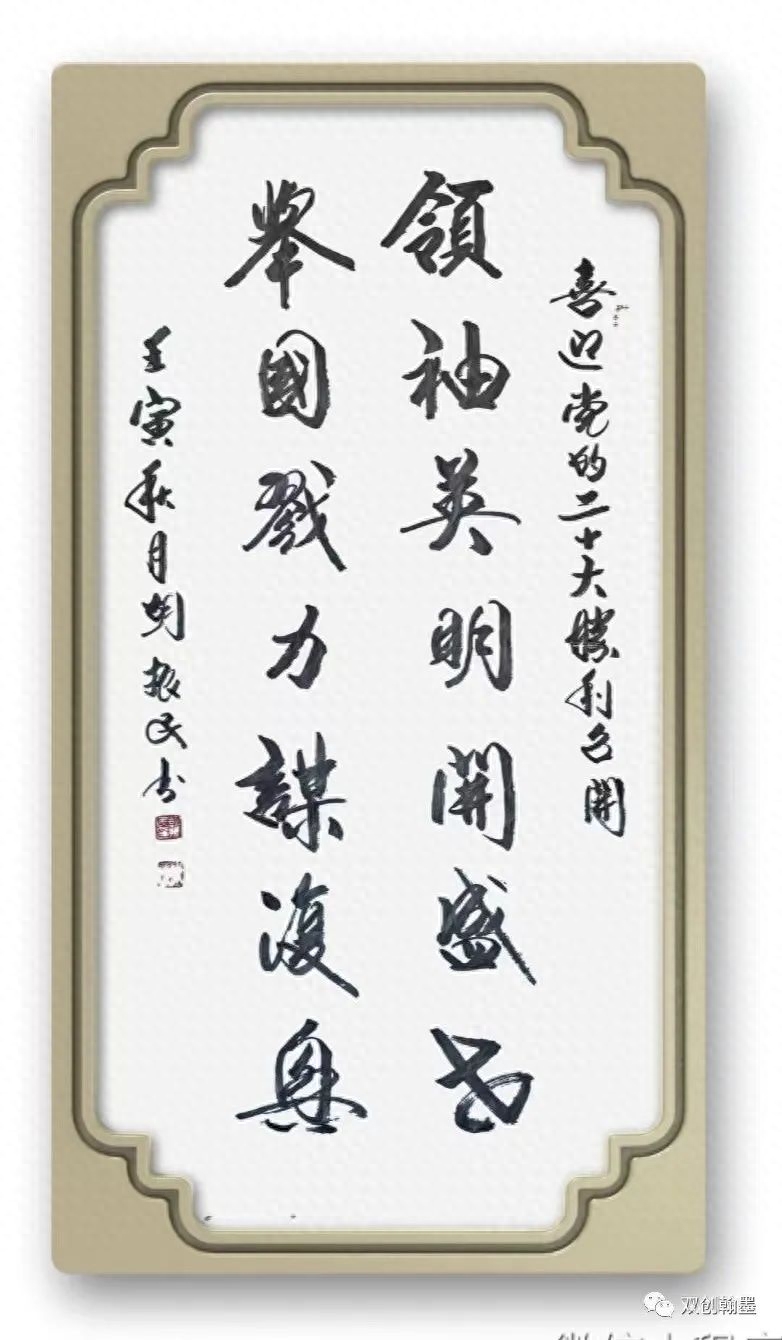 喜迎党的二十大勝利召開
領袖英明開盛世
舉國戮力謀復興
壬寅秋月刘振民书
双创翰墨